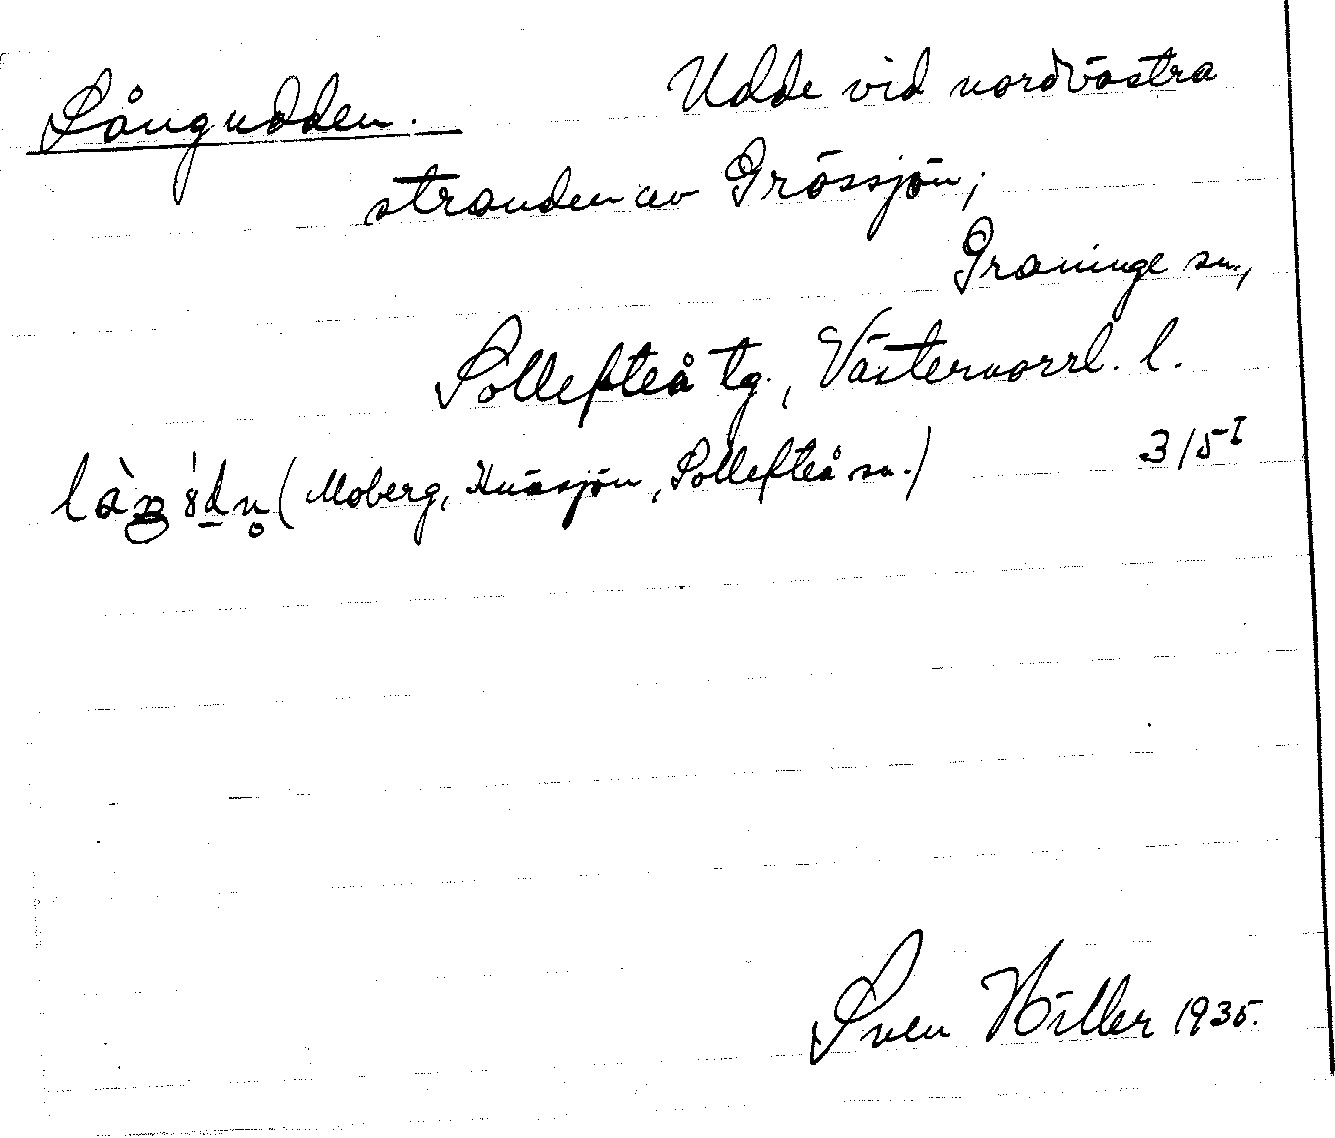 Långudden. Udde vid nordvästra
stranden av Grässjön;
Graninge sn.,
Sollefteå tg., Västernorrl. l.
(Moberg, Knäsjön, Sollefteå sn.) 3/5 I
Sven Hiller 1935.